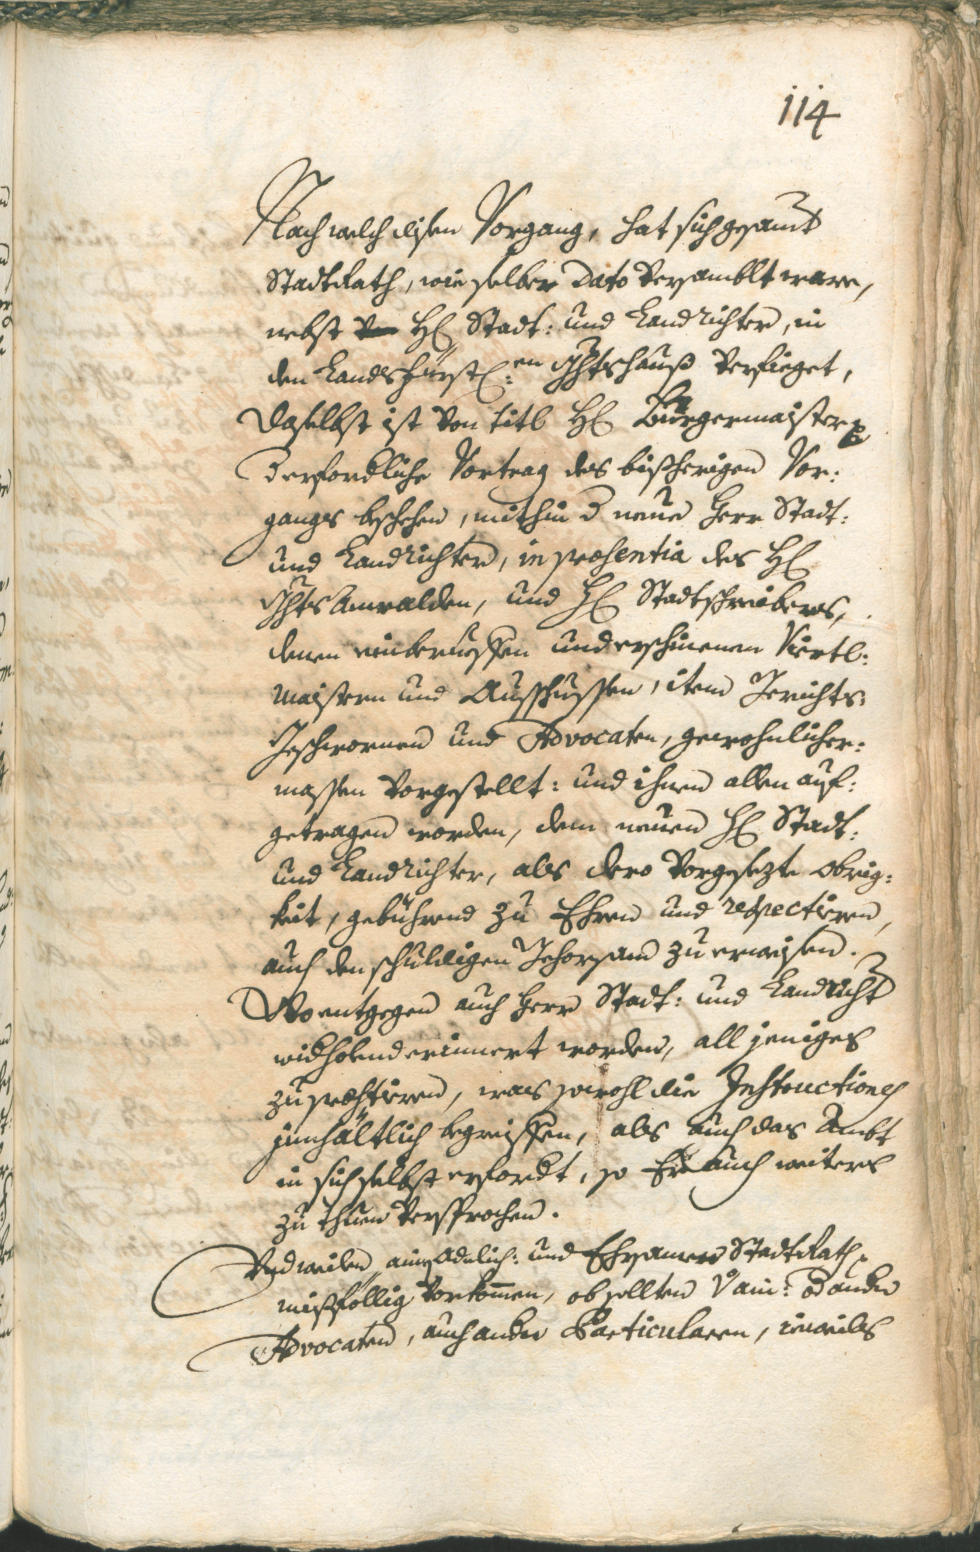 114
Nach welch disen Vorgang, hat sich gesamt
StadtRath, wie selber dato versamblt ware,
nebst H: Stadt: und Landrichter, in
den Landsfürstl:en Ghtshauß verfieget,
daselbst ist von titl H: Bürgermaister
d erfordliche Vortrag des bißherigen Vor:
gangs beschehen, mithin d neue Herr Stadt:
und Landrichter, in præsentia des H:
Ghts Anwalden, und H: Stadtschreibers,
denen einberueffen und erschinenen Viertl:
maistern und Ausschussen, item Gerichts
Geschwornen und Advocaten, gewohnlicher:
massen vorgestellt: und ihnen allen auf:
getragen worden, dem neuen H: Stadt:
und Landrichter, als dero vorgesezte Obrig:
keit, gebührend zu Ehren und respectiren,
auch den schuldigen Gehorsam zu erweisen.
Wo entgegen auch Herr Stadt: und Landricht
widholend erinnert worden, all jeniges
zu præstiren, was sowohl die Instructiones
innhältlich begreiffen, als auch das Ambt
in sich selbst erfordt, so Er auch weiters
zu thuen versprochen.
Und weilen ain Adelich: und Ehrsamen StadtRath
mißföllig vorkommen, ob sollten ain: od ander
Advocaten, auch ander Particularen, jeweils